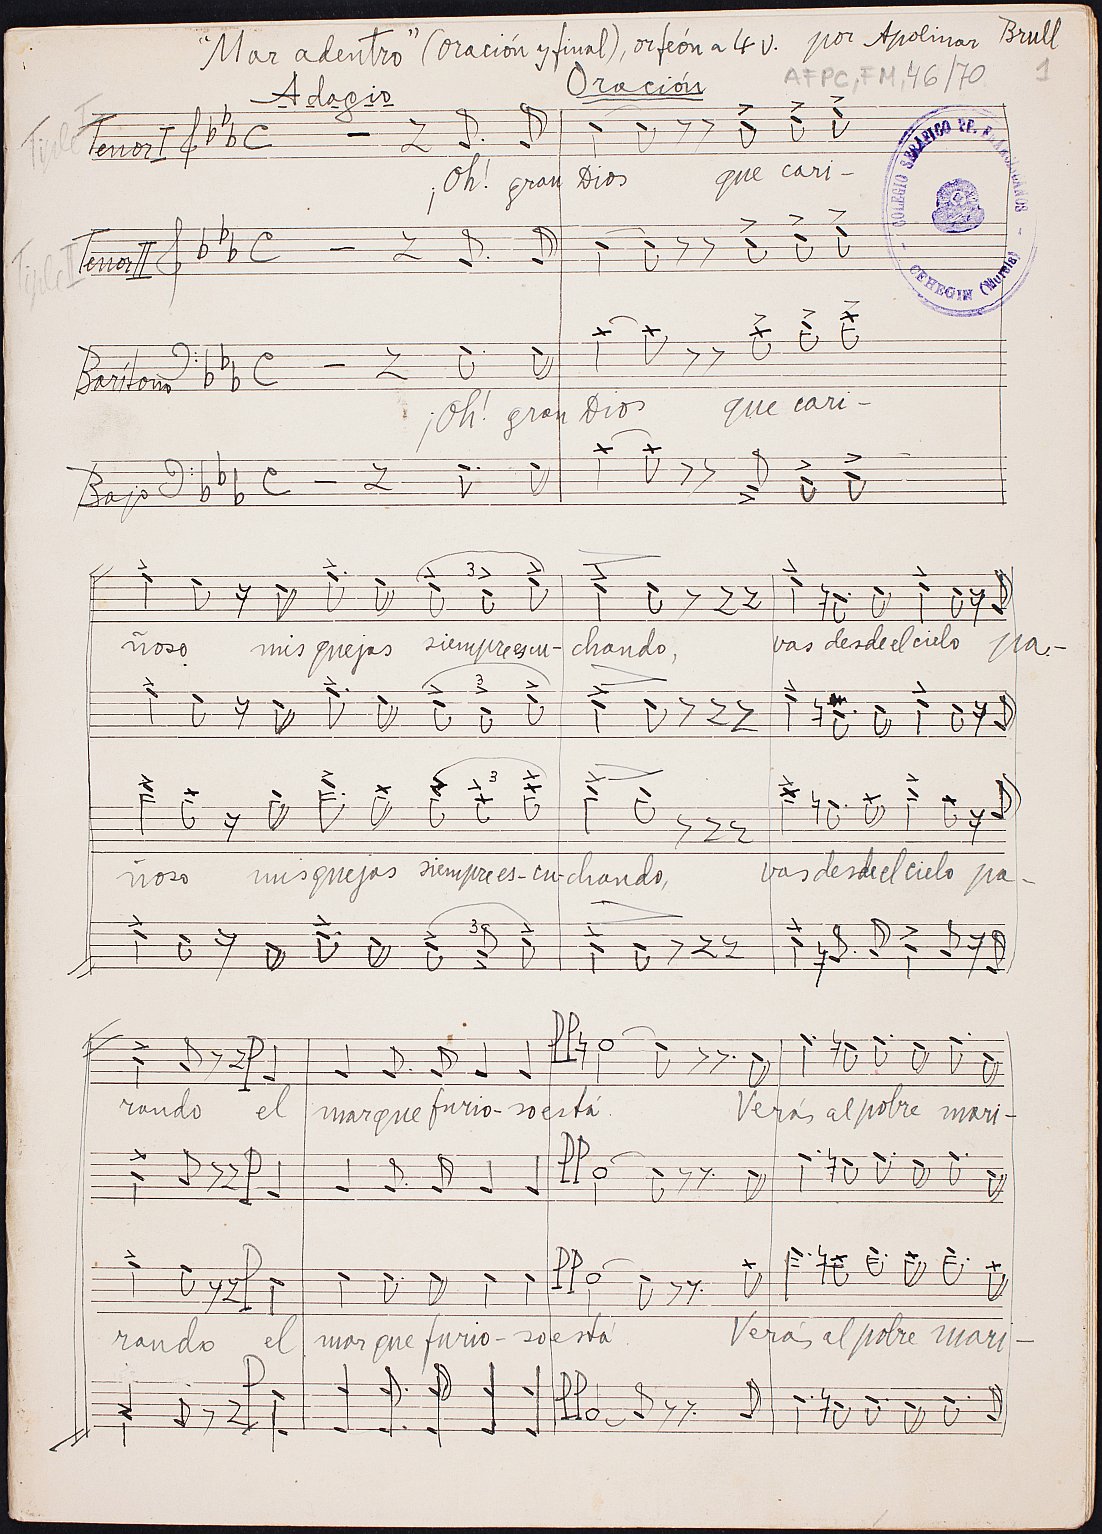 "Mar adentro" (oración y final), orfeón a 4 v. por Apolinar Brull
AFPC, FM, 46/70 1
Adagio Oración
Tiple I
Tenor I
¡Oh! gran Dios que cari-
COLEGIO SERÁFICO PP. FRANCISCANOS
- CEHEGIN (Murcia) -
Tiple II
Tenor II
Barítono
¡Oh! gran Dios que cari-
Bajo
3
ñoso mis quejas siempre escu-chando, vas desde el cielo pa-
3
3
ñoso mis quejas siempre es-cu-chando, vas desde el cielo pa-
3
P PP
rando el mar que furio-so está. Verás al pobre mari-
P PP
P PP
rando el mar que furio-so está. Verás al pobre mari-
P PP